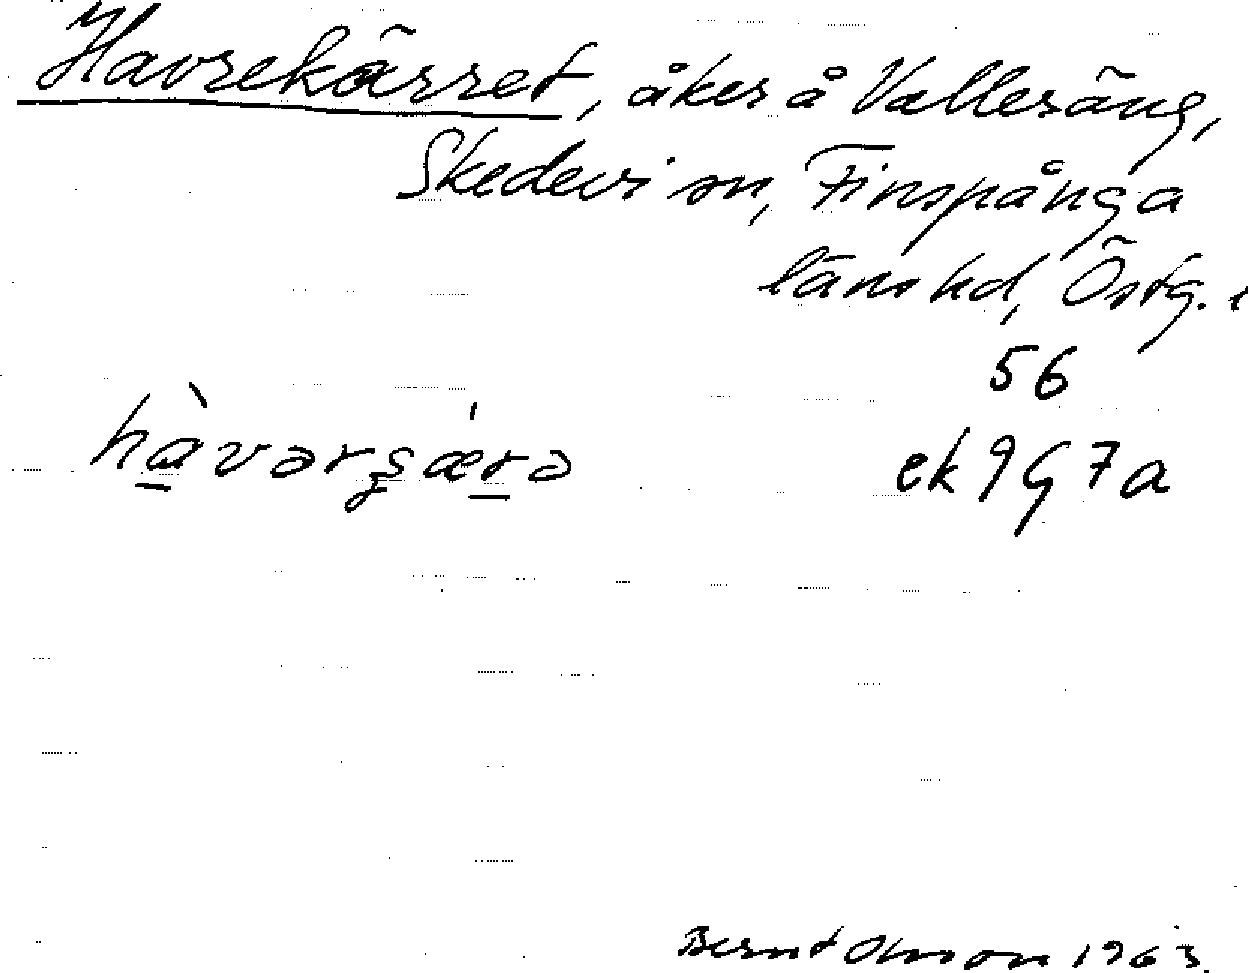 Havrekärret, åker å Vallersäng,
Skedevi sn, Finspånga
läns hd, Östg. l
56
hàvərʂæ̀rə
ek 9G7a
Bernt Olsson 1963.